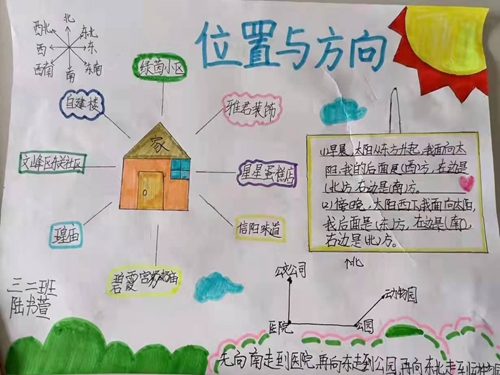 位置与方向
北
西北
东北
西
东
西南
南
东南
绿茵小区
自建楼
雅君装饰
家
文峰区东关社区
星星蛋糕店
瑝庙
信阳味道
碧霞宫奶奶庙
(1)早晨,太阳从东方升起,我面向太
阳,我的后面是(西)方,在边是
(北)方,右边是(南)方。
(2)傍晚,太阳西下我面向太阳,
我后面是(东)方,在边是(南),
右边是(北)方。
三二班
陆书萱
北
公交公司
动物园
医院
公园
先向南走到医院,再向东走到公园,再向东北走到动物园